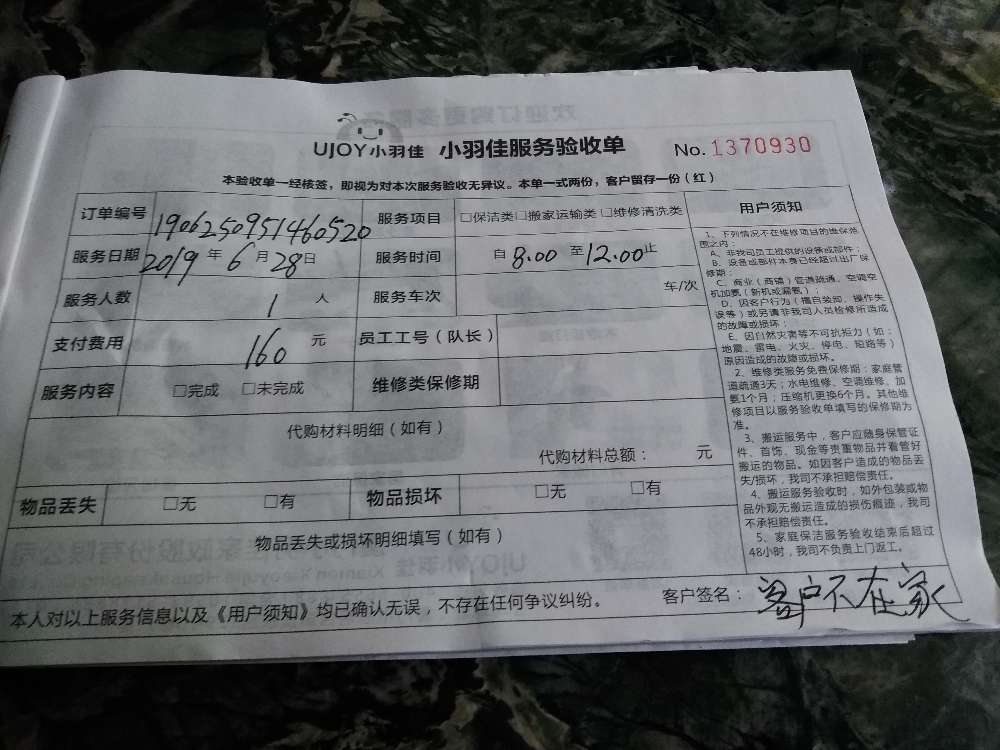 UJOY小羽佳 小羽佳服务验收单 No. 1370930
本验收单一经核签，即视为对本次服务验收无异议。本单一式两份，客户留存一份（红）
订单编号 190625095146052​0 服务项目 □保洁类□搬家运输类□维修清洗类
服务日期 2019 年 6 月 28 日 服务时间 自 8.00 至 12.00 止
服务人数 1 人 服务车次 车/次
支付费用 160 元 员工工号（队长）
服务内容 □完成 □未完成 维修类保修期
代购材料明细（如有）
代购材料总额： 元
物品丢失 □无 □有 物品损坏 □无 □有
物品丢失或损坏明细填写（如有）
本人对以上服务信息以及《用户须知》均已确认无误，不存在任何争议纠纷。 客户签名： 客户不在家
用户须知
1、下列情况不在维修项目的维保范
围之内：
A、非我司员工提供的设备或部件；
B、设备或部件本身已经超过出厂保
修期；
C、商业（商铺）管道疏通、空调空
机加氨（新机或漏氨）；
D、因客户行为（擅自装卸、操作失
误等）或另请非我司人员检修所造成
的故障或损坏；
E、因自然灾害等不可抗拒力（如：
地震、雷电、火灾、停电、短路等）
原因造成的故障或损坏。
2、维修类服务免费保修期：家庭管
道疏通3天；水电维修、空调维修、加
氨1个月；压缩机更换6个月。其他维
修项目以服务验收单填写的保修期为
准。
3、搬运服务中，客户应随身保管证
件、首饰、现金等贵重物品并看管好
搬运的物品。如因客户造成的物品丢
失/损坏，我司不承担赔偿责任。
4、搬运服务验收时，如外包装或物
品外观无搬运造成的损伤痕迹，我司
不承担赔偿责任。
5、家庭保洁服务验收结束后超过
48小时，我司不负责上门返工。